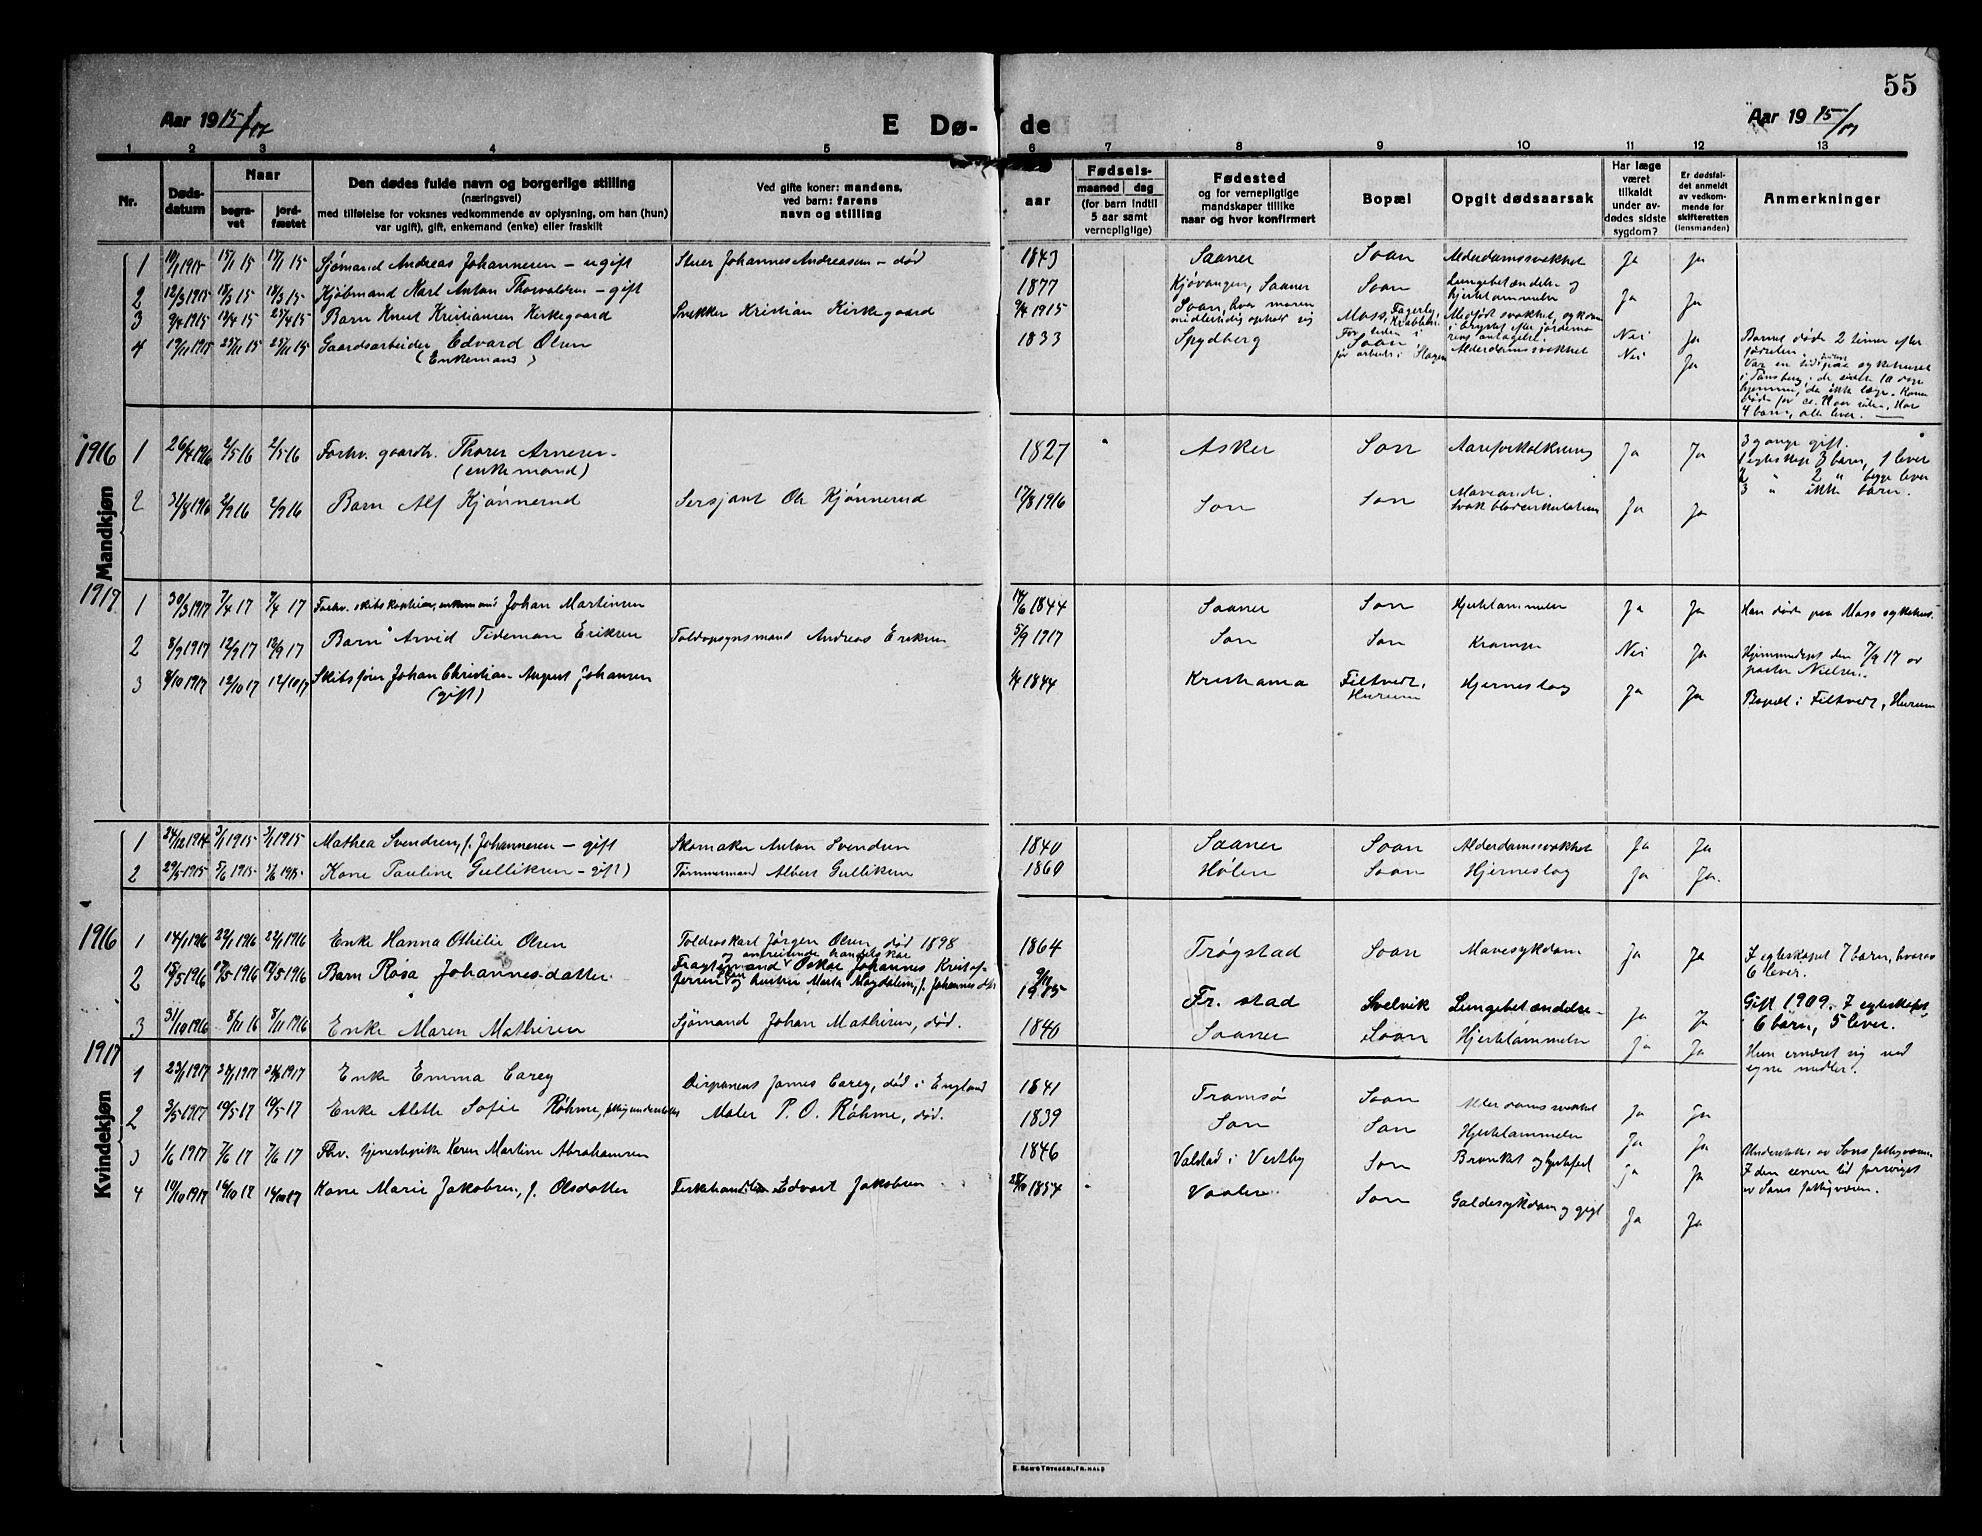 55
Aar 1915/17
E Dø-
de
Aar 1915/17
1 2 3 4 5 6 7 8 9 10 11 12 13
Nr.
Døds-
datum
Naar
begra-
vet
jord-
fæstet
Den dødes fulde navn og borgerlige stilling
(næringsvei)
med tilføielse for voksnes vedkommende av oplysning, om han (hun)
var ugift), gift, enkemand (enke) eller fraskilt
Ved gifte koner: mandens,
ved barn: farens
navn og stilling
aar
Fødsels-
maaned dag
(for barn indtil
5 aar samt
vernepligtige)
Fødested
og for vernepligtige
mandskaper tillike
naar og hvor konfirmert
Bopæl
Opgit dødsaarsak
Har læge
været
tilkaldt
under av-
dødes sidste
sygdom?
Er dødsfal-
det anmeldt
av vedkom-
mende for
skifteretten
(lensmanden)
Anmerkninger
Mandkjøn
1 10/1 1915 15/1 15 15/1 15 Sjømand Andreas Johannesen – ugift Stuer Johannes Andreasen – død 1843 Saaner Soon Alderdomssvakhet Ja Ja
2 12/3 1915 18/3 15 18/3 15 Kjøbmand Karl Anton Thorvaldsen – gift 1877 Kjøvangen, Saaner Soon Lungebetændelse og
hjertelammelse Ja Ja
3 9/4 1915 13/4 15 25/4 15 Barn Knut Kristiansen Kirkegaard Snekker Kristian Kirkegaard 9/4 1915 Soon, hvor moren
midlertidig opholdt sig Moss, Fagerby, Medfødt svakhet
Nei Ja Barnet døde 2 timer efter
fødselen.
4 19/11 1915 25/11 15 25/11 15 Gaardsarbeider Edvard Olsen
(Enkemand) 1833 Spydberg Soon
før arbeidet i Slagen Alderdomssvakhet Nei Ja Var en tid paa sykehuset
i Tønsberg, de sidste 12 dage
hjemme, da ikke læge. Konen
døde for ca. 11 aar siden, Har
4 barn, alle lever.
1916
1 26/4 1916 2/5 16 2/5 16 Forhv. gaardbr. Thorer Arnesen
(enkemand) 1827 Asker Son Aareforkalkning Ja Ja 3 gange gift.
1 egteskap 3 barn, 1 lever
2 " 2 " begge lever
3 " ikke barn.
2 31/8 1916 2/9 16 2/9 16 Barn Alf Kjønnerud Sersjant Ole Kjønnerud 17/8 1916 Son Son
Svak blodcirkulation Ja Ja
1917
1 30/3 1917 7/4 17 7/4 17 Forhv. skibskaptein, enkemand Johan Martinsen 14/6 1844 Saaner Son Hjertelammelse Ja Ja Han døde paa Moss sykehus.
2 8/9 1917 12/9 17 12/9 17 Barn Arvid Tideman Eriksen Toldopsynsmand Andreas Eriksen 5/9 1917 Son Son Krampe Nei Ja Hjemmedøpt den 7/9 17 av
pastor Nielsen.
3 8/10 1917 12/10 17 12/10 17 Skibsfører Johan Christian August Johansen
(gift) 1/4 1844 Kristiania Filtvedt,
Hurum Hjerneslag Ja Ja Bopæl i Filtvedt, Hurum
Kvindekjøn
1 24/12 1914 3/1 1915 3/1 1915 Mathea Svendsen, f. Johannesen – gift Skomaker Anton Svendsen 1840 Saaner Soon Alderdomssvakhet Ja Ja
2 29/5 1915 5/6 1915 5/6 1915 Kone Pauline Gulliksen – gift) Tømmermand Albert Gulliksen 1860 Hølen Soon Hjerneslag Ja Ja.
1916
1 14/1 1916 22/1 1916 22/1 1916 Enke Hanna Othilie Olsen Toldroskarl Jørgen Olsen, død 1898 1864 Trøgstad Soon Mavesykdom Ja Ja I egteskapet 7 barn, hvorav
6 lever.
2 15/5 1916 17/5 1916 17/5 1916 Barn Rosa Johannesdatter Fragtemand Oskar Johannes Kristof-
fersen og hustru Marta Magdalena, f. Johannesdtr. 1915 Fr. stad Svelvik Lungebetændelse Ja Ja Gift 1909. I egteskapet
6 barn, 5 lever.
3 31/10 1916 8/11 16 8/11 1916 Enke Maren Mathisen Sjømand Johan Mathisen, død. 1840 Saaner Soon Hjertelammelse Ja Ja Hun ernæret sig ved
egne midler.
1917
1 23/1 1917 1917 1917 Enke Emma Carey Disponent James Carey, død i England 1841 Tromsø Soon Alderdomssvakhet Ja Ja
2 3/5 1917 10/5 17 10/5 17 Enke Alette Sofie Røhme, fattigunderstøttet Maler P. O. Røhme, død. 1839 Son Son Hjertelammelse Ja Ja
3 1/6 1917 7/6 17 7/6 17 Fhv. tjenestepike Karen Martine Abrahamsen 1846 Valstad i Vestby Son Bronkit og hjertefeil Ja Ja Understøttet av Sons fattigvæsen.
I den senere tid forsørget
av Sons fattigvæsen.
4 10/10 1917 14/10 17 14/10 17 Kone Marie Jakobsen, f. Olsdatter Fiskehandler Edvart Jakobsen 1854 Vaaler Son Galdesykdom og gigt Ja Ja
E. SEM'S TRYKKERI, FR.HALD